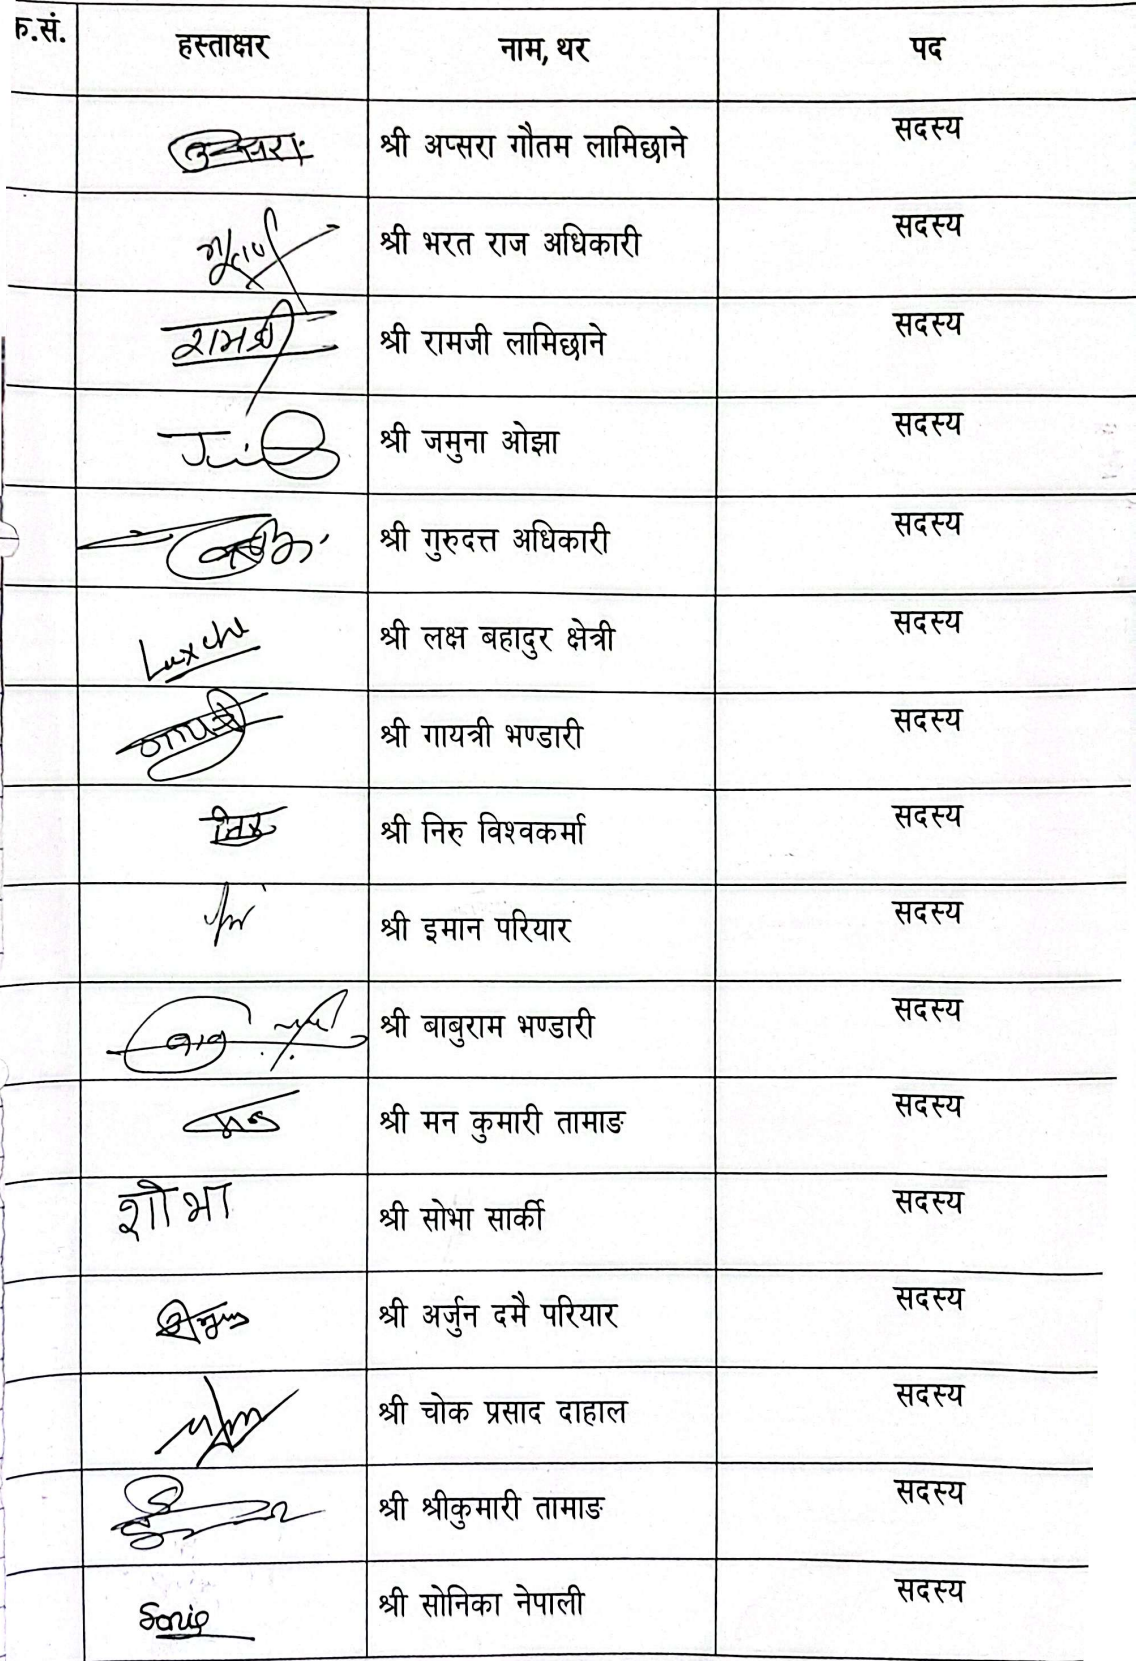 क.सं. हस्ताक्षर नाम, थर पद
श्री अप्सरा गौतम लामिछाने सदस्य
श्री भरत राज अधिकारी सदस्य
श्री रामजी लामिछाने सदस्य
श्री जमुना ओझा सदस्य
श्री गुरुदत्त अधिकारी सदस्य
श्री लक्ष बहादुर क्षेत्री सदस्य
गायत्री श्री गायत्री भण्डारी सदस्य
निरु श्री निरु विश्वकर्मा सदस्य
श्री इमान परियार सदस्य
श्री बाबुराम भण्डारी सदस्य
मन श्री मन कुमारी तामाङ सदस्य
शोभा श्री सोभा सार्की सदस्य
श्री अर्जुन दमै परियार सदस्य
श्री चोक प्रसाद दाहाल सदस्य
श्री श्रीकुमारी तामाङ सदस्य
श्री सोनिका नेपाली सदस्य